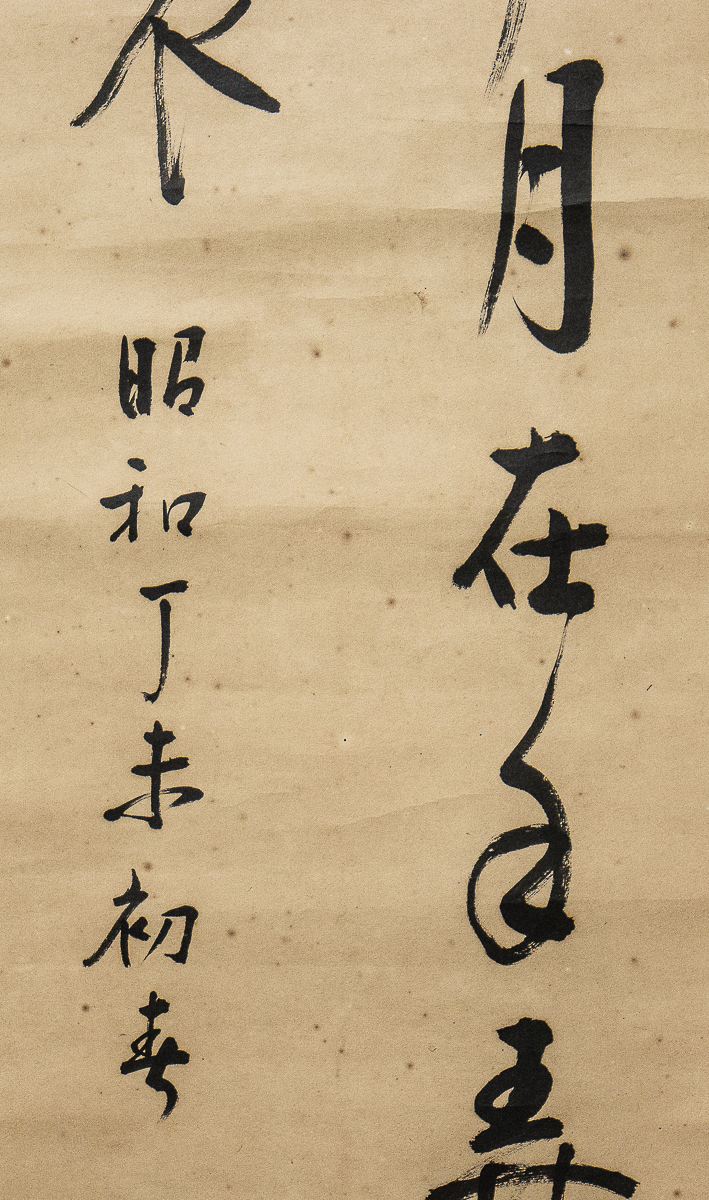 月在手弄
昭和丁未初春